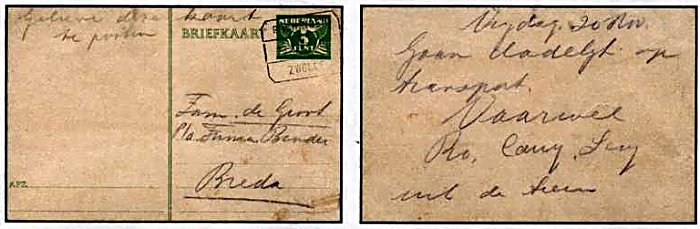 Gelieve deze kaart
te posten
BRIEFKAART
NEDERLAND
5
CENT
ZWOLLE
Fam. de Groot
p/a Firma Binder
Breda
AFZ.
Vrijdag 20 Nov.
Gaan dadelijk op
transport.
Vaarwel
Ro,
uit de trein